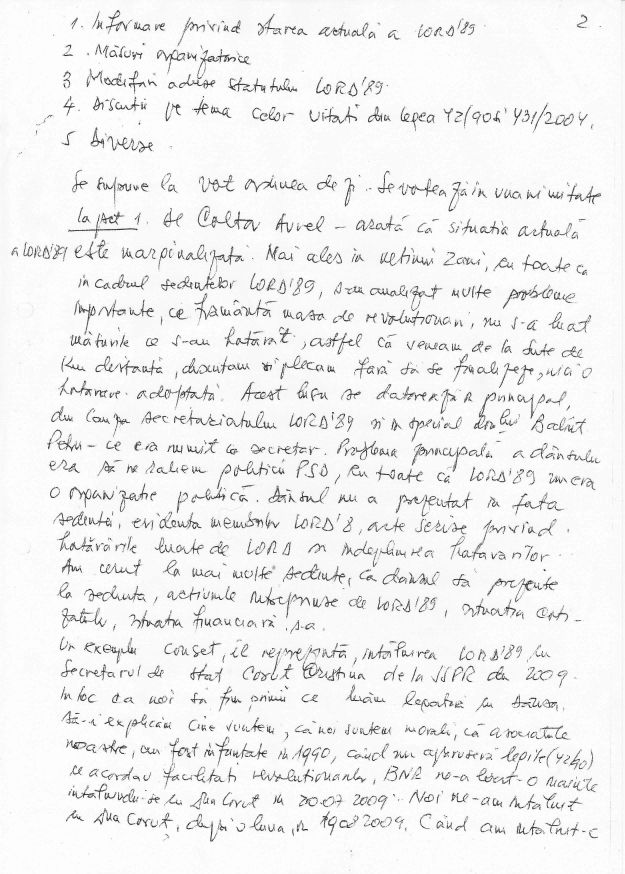 2.
1. Informare privind starea actuală a LORD'89
2. Măsuri organizatorice
3 Modificări aduse statutului LORD'89.
4. Discuții pe tema celor uitați din legea 42/90 și 431/2004.
5 Diverse.
Se supune la vot ordinea de zi. Se votează în unanimitate
La pct 1. Dl Coltov Avrel – arată că situația actuală
a LORD'89 este marginalizată. Mai ales în ultimii 2 ani, cu toate că
în cadrul ședintelor LORD'89, s-au analizat multe probleme
importante, ce frământă masa de revoluționari, nu s-a luat
măsurile ce s-au hotărât, astfel că veneam de la sute de
km distanță, discutam și plecam fără să se finalizeze, nici o
hotărâre adoptată. Acest lucru se datorează în principal,
din cauza secretariatului LORD'89 și în special dnlui
Petru – ce era numit ca secretar. Problema principală a dânsului
era să ne raliem politicii PSD, cu toate că LORD'89 nu era
o organizație politică. Dânsul nu a prezentat în fața
sedintei, evidența membrilor LORD'8, acte scrise privind
hotărârile luate de LORD și îndeplinirea hotararilor.
Am cerut la mai multe sedinte, ca dânsul să prezinte
la sedinta, acțiunile întreprinse de LORD'89, situația
situația financiară. ș.a.
Un exemplu concret, îl reprezintă, întâlnirea LORD'89 cu
Secretarul de Stat Corut Cristina de la SSPR din 2009.
În loc ca noi să fim primii ce luăm legatura cu dânsa.
Să-i explicăm cine suntem, că noi suntem morali, că asociațiile
noastre, au fost înfiintate în 1990, când nu apăruseră legile (42/90)
ce acordau facilitati revoluționarilor, BNR ne-a luat-o înainte
întâlnindu-se cu dna Corut în 20.07 2009. Noi ne-am întâlnit
cu dna Corut, după o luna, în 19 08 2009. Când am întâlnit-o